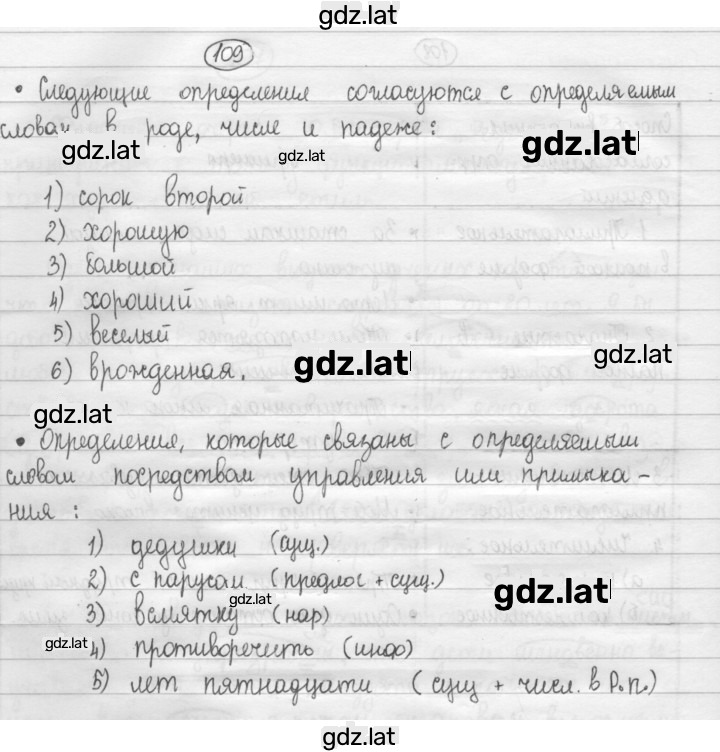 gdz.lat
109
• Следующие определения согласуются с определяемым
словам в роде, числе и падеже:
gdz.lat
gdz.lat
gdz.lat
1) сорок второй
2) хорошую
3) большой
4) хороший
5) веселый
6) врожденная.
gdz.lat
gdz.lat
gdz.lat
• Определения, которые связаны с определяемым
словом посредством управления или примыка-
ния:
1) дедушки (сущ.)
2) с парусом (предлог сущ.)
gdz.lat
gdz.lat
3) всмятку (нар)
gdz.lat
4) противоречить (инф)
5) лет пятнадцати (сущ + числ. в Р.п.)
gdz.lat